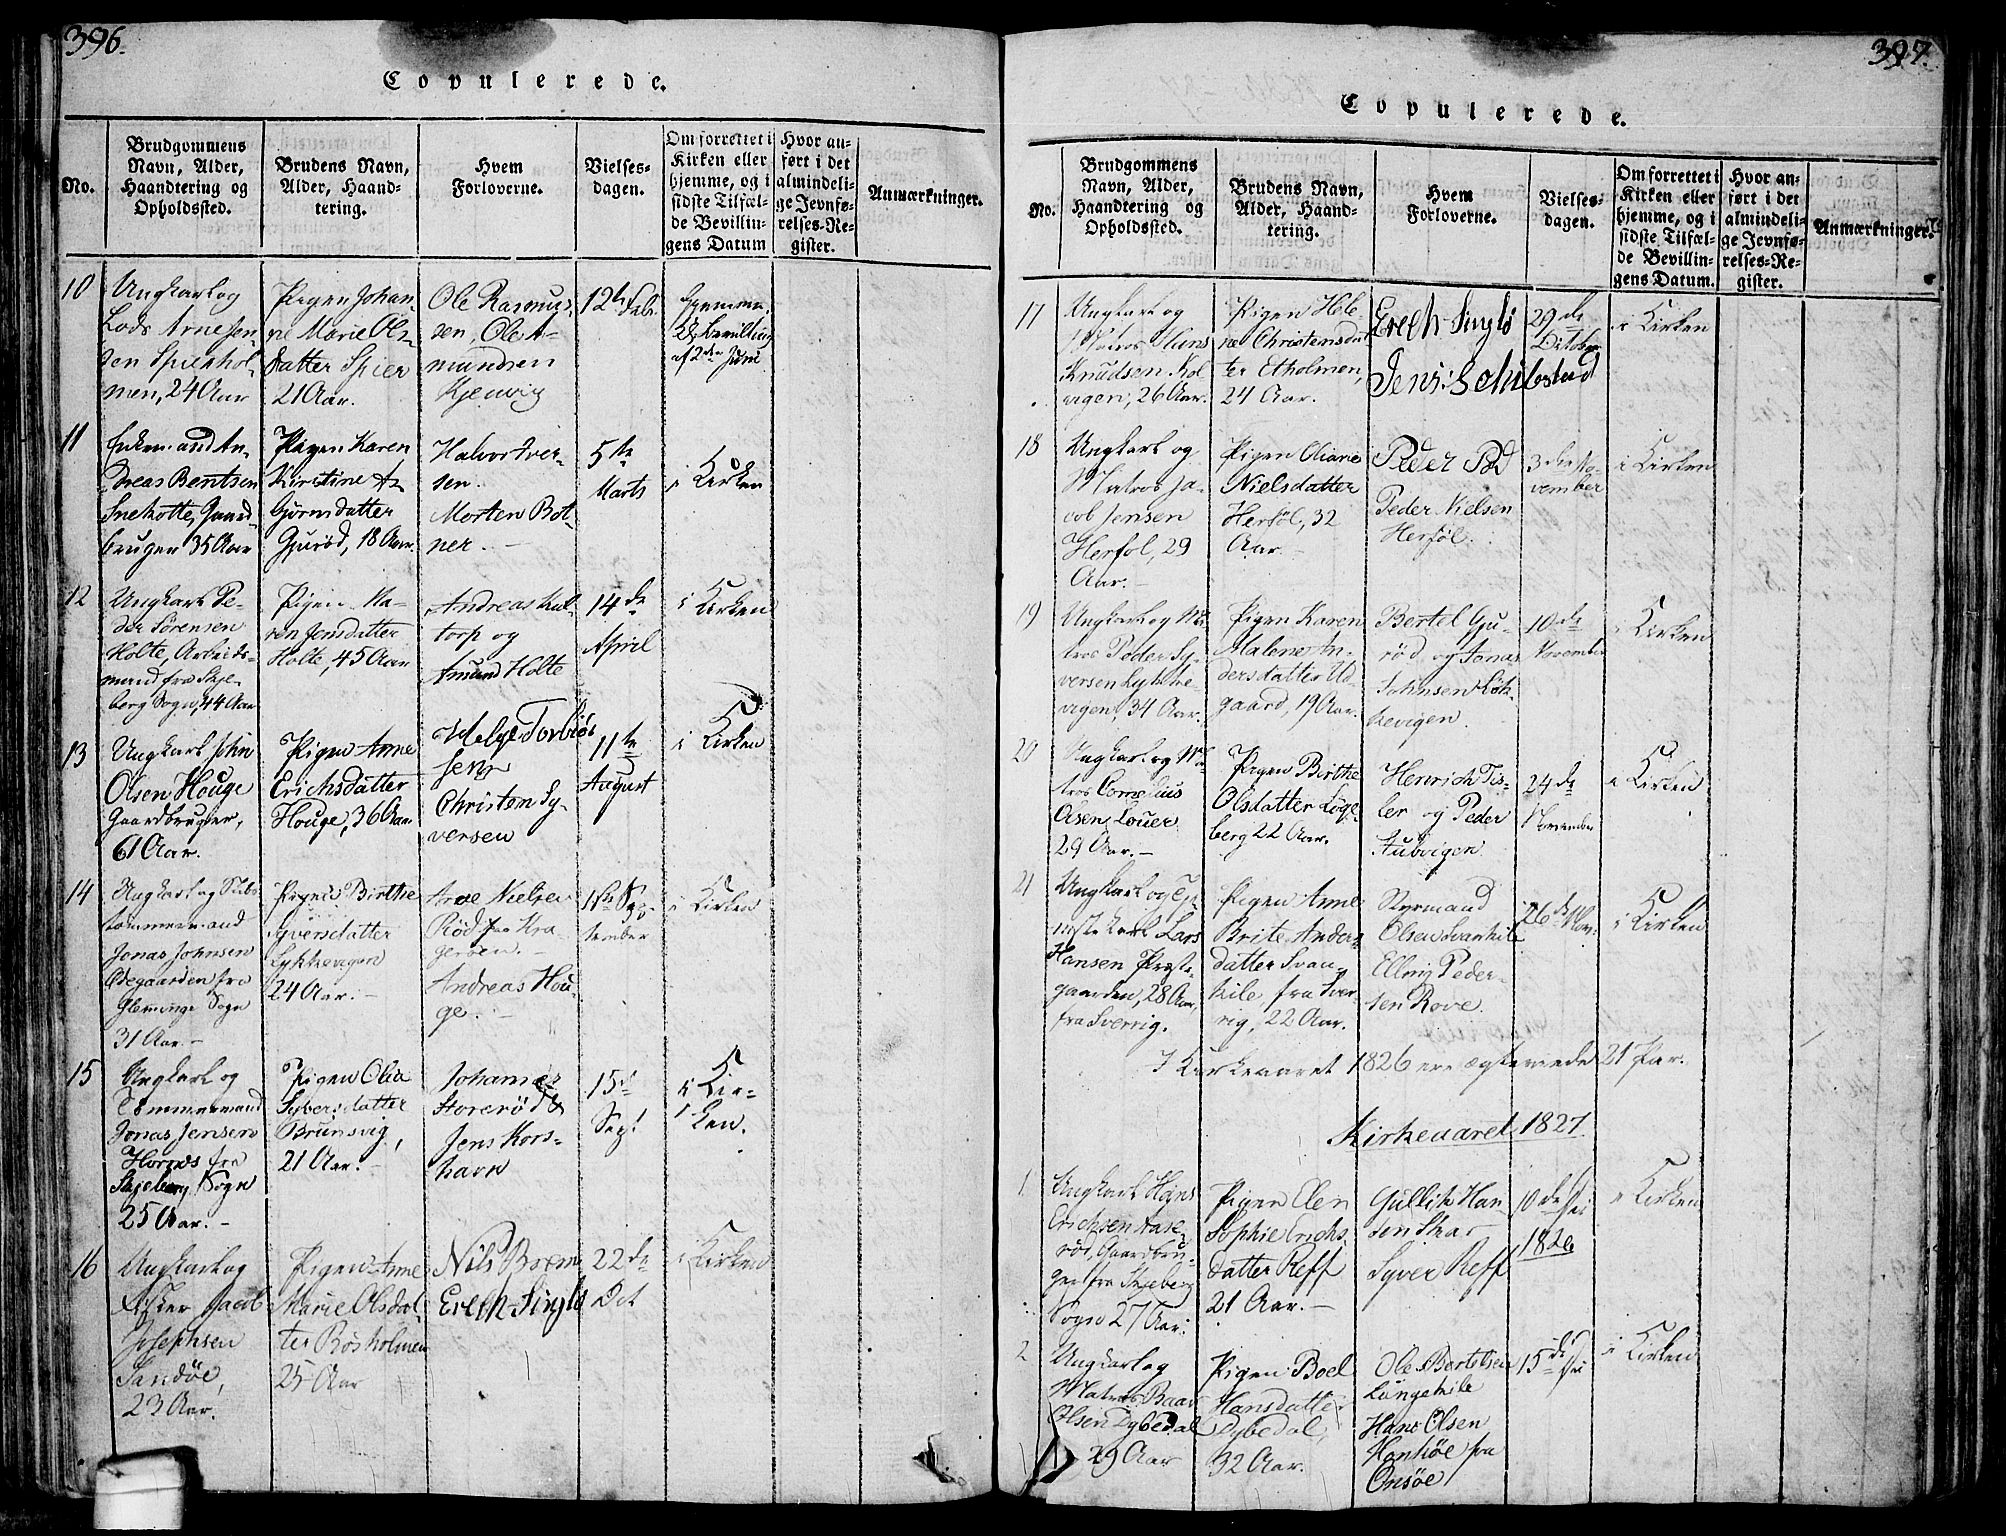 396.
Copulerede.
No.
Brudgommens
Navn, Alder,
Haandtering og
Opholdssted.
Brudens Navn,
Alder, Haand-
tering.
Hvem
Forloverne.
Vielses-
dagen.
Om forrettet i
Kirken eller
hjemme, og i
sidste Tilfæl-
de Bevillin-
gens Datum
Hvor an-
ført i det
almindeli-
ge Jevnfø-
relses-Re-
gister.
Anmærkninger.
10
Ungkarl og
Lods Arne Jen-
sen Spierhol-
men, 24 Aar
Pigen Johan-
ne Marie Ols-
datter Spier
21 Aar.
Ole Rasmus-
sen, Ole A-
mundsen
Kjenvig
12te Febr.
Hjemme.
Bevilling
af 2den Juni
11
Enkemand An-
dreas Bentsen
Snekotte, Gaard-
brugen 35 Aar
Pigen Karen
Kirstine As-
Gjørnsdatter
Gjurød, 18 Aar.
Halvor Iver-
sen.
Morten Bot-
ner.
5te
Marts
i Kirken
12
Ungkarl Pe-
der Sørensen
Holte, Arbeids-
mand fra Skje-
berg Sogn, 44 Aar
Pigen Ma-
ren Jensdatter
Holte, 45 Aar
Andreas Kal-
torp og
Amund Holte
14de
April
i Kirken
13
Ungkarl John
Olsen Houge
Gaardbruger,
61 Aar.
Pigen Anne
Erichsdatter
Houge, 36 Aar
Helge Torbiør
sen
Christen Sy-
versen
11te
August
i Kirken
14
Ungkarl og Skibs-
tømmermand
Jonas Johnsen
Ødegaarden fra
Glemminge Sogn
31 Aar.-
Pigen Birthe
Syversdatter
Lykkevigen
24 Aar.-
Arne Nielsen
Rød fra Kra-
gerøen.-
Andreas Hou-
ge.
1ste Sep-
tember
i Kirken
15
Ungkarl og
Tømmermand
Jonas Jensen
Hornes fra
Skjeberg Sogn
25 Aar.-
Pigen Olia
Syversdatter
Brunsvig,
21 Aar.-
Johannes
Storerød &
Jens Kors-
havn
15de
Sept
i Kir-
ken.
16
Ungkarl og
Fisker Jacob
Josephsen
Sandøe,
23 Aar.
Pigen Anne
Marie Olsdat-
ter Bøsholmen
25 Aar
Nils Brem
Ereth Singlø
22de
Oct
i Kirken
397.
Copulerede.
No.
Brudgommens
Navn, Alder,
Haandtering og
Opholdssted.
Brudens Navn,
Alder, Haand-
tering.
Hvem
Forloverne.
Vielses-
dagen.
Om forrettet i
Kirken eller
hjemme, og i
sidste Tilfæl-
de Bevillin-
gens Datum.
Hvor an-
ført i det
almindeli-
ge Jevnfø-
relses-Re-
gister.
Anmærkninger.
17
Ungkarl og
Matros Hans
Knudsen Kol
vigen, 26 Aar.
Pigen Hele-
ne Christensdat
ter Etholmen,
24 Aar.
Ereth Singlø
Jens Schibstad
29de
October
i Kirken
18
Ungkarl og
Matros Ja-
cob Jensen
Herføl, 29
Aar.-
Pigen Oliane
Nielsdatter
Herføl, 32
Aar.-
Peder Pod
Peder Nielsen
Herføl.
3die No-
vember
i Kirken
19
Ungkarl og Ma
tros Peder Sy-
versen Lykke-
vigen, 34 Aar.
Pigen Karen
Malene An-
dersdatter Ud-
gaard, 19 Aar.
Bertel Gju-
rød og Jonas
Johnsen Løk-
kevigen.
10de
November
i Kirken
20
Ungkarl og Ma-
tros Cornelius
Olsen Louer
29 Aar.-
Pigen Birthe
Olsdatter Løge-
berg 22 Aar.
Henrich Tis-
ler og Peder
Aubvigen
24de
November
i Kirken
21
Ungkarl og Tje-
nestekarl Lars
Hansen Præste-
gaarden, 28 Aar,
fra Sverrig.
Pigen Anne
Brite Anders-
datter Svan-
kile, fra Sver-
rig, 22 Aar.
Styrmand
Olsen Svankile
Elling Peder-
sen Rove.
26de Nov.
i Kirken
I Kirkeaaret 1826 ere ægteviede 21 Par.
Kirkeaaret 1827.
1.
Ungkarl Hans
Erichsen Aase-
rød, Gaardbru-
ger fra Skjeberg
Sogn 27 Aar.
Pigen Elen
Sophie Erichs-
datter Reff
21 Aar.-
Gullik Han
sen Skar
Syver Reff
10de
1826
i Kirken
2
Ungkarl og
Matros Baar
Olsen Dybedal
29 Aar
Pigen Boel
Hansdatter
Dybedal,
32 Aar.
Ole Bertelsen
Lungekile
Hans Olsen
Hankøe fra
Onsøe
15de
i Kirken